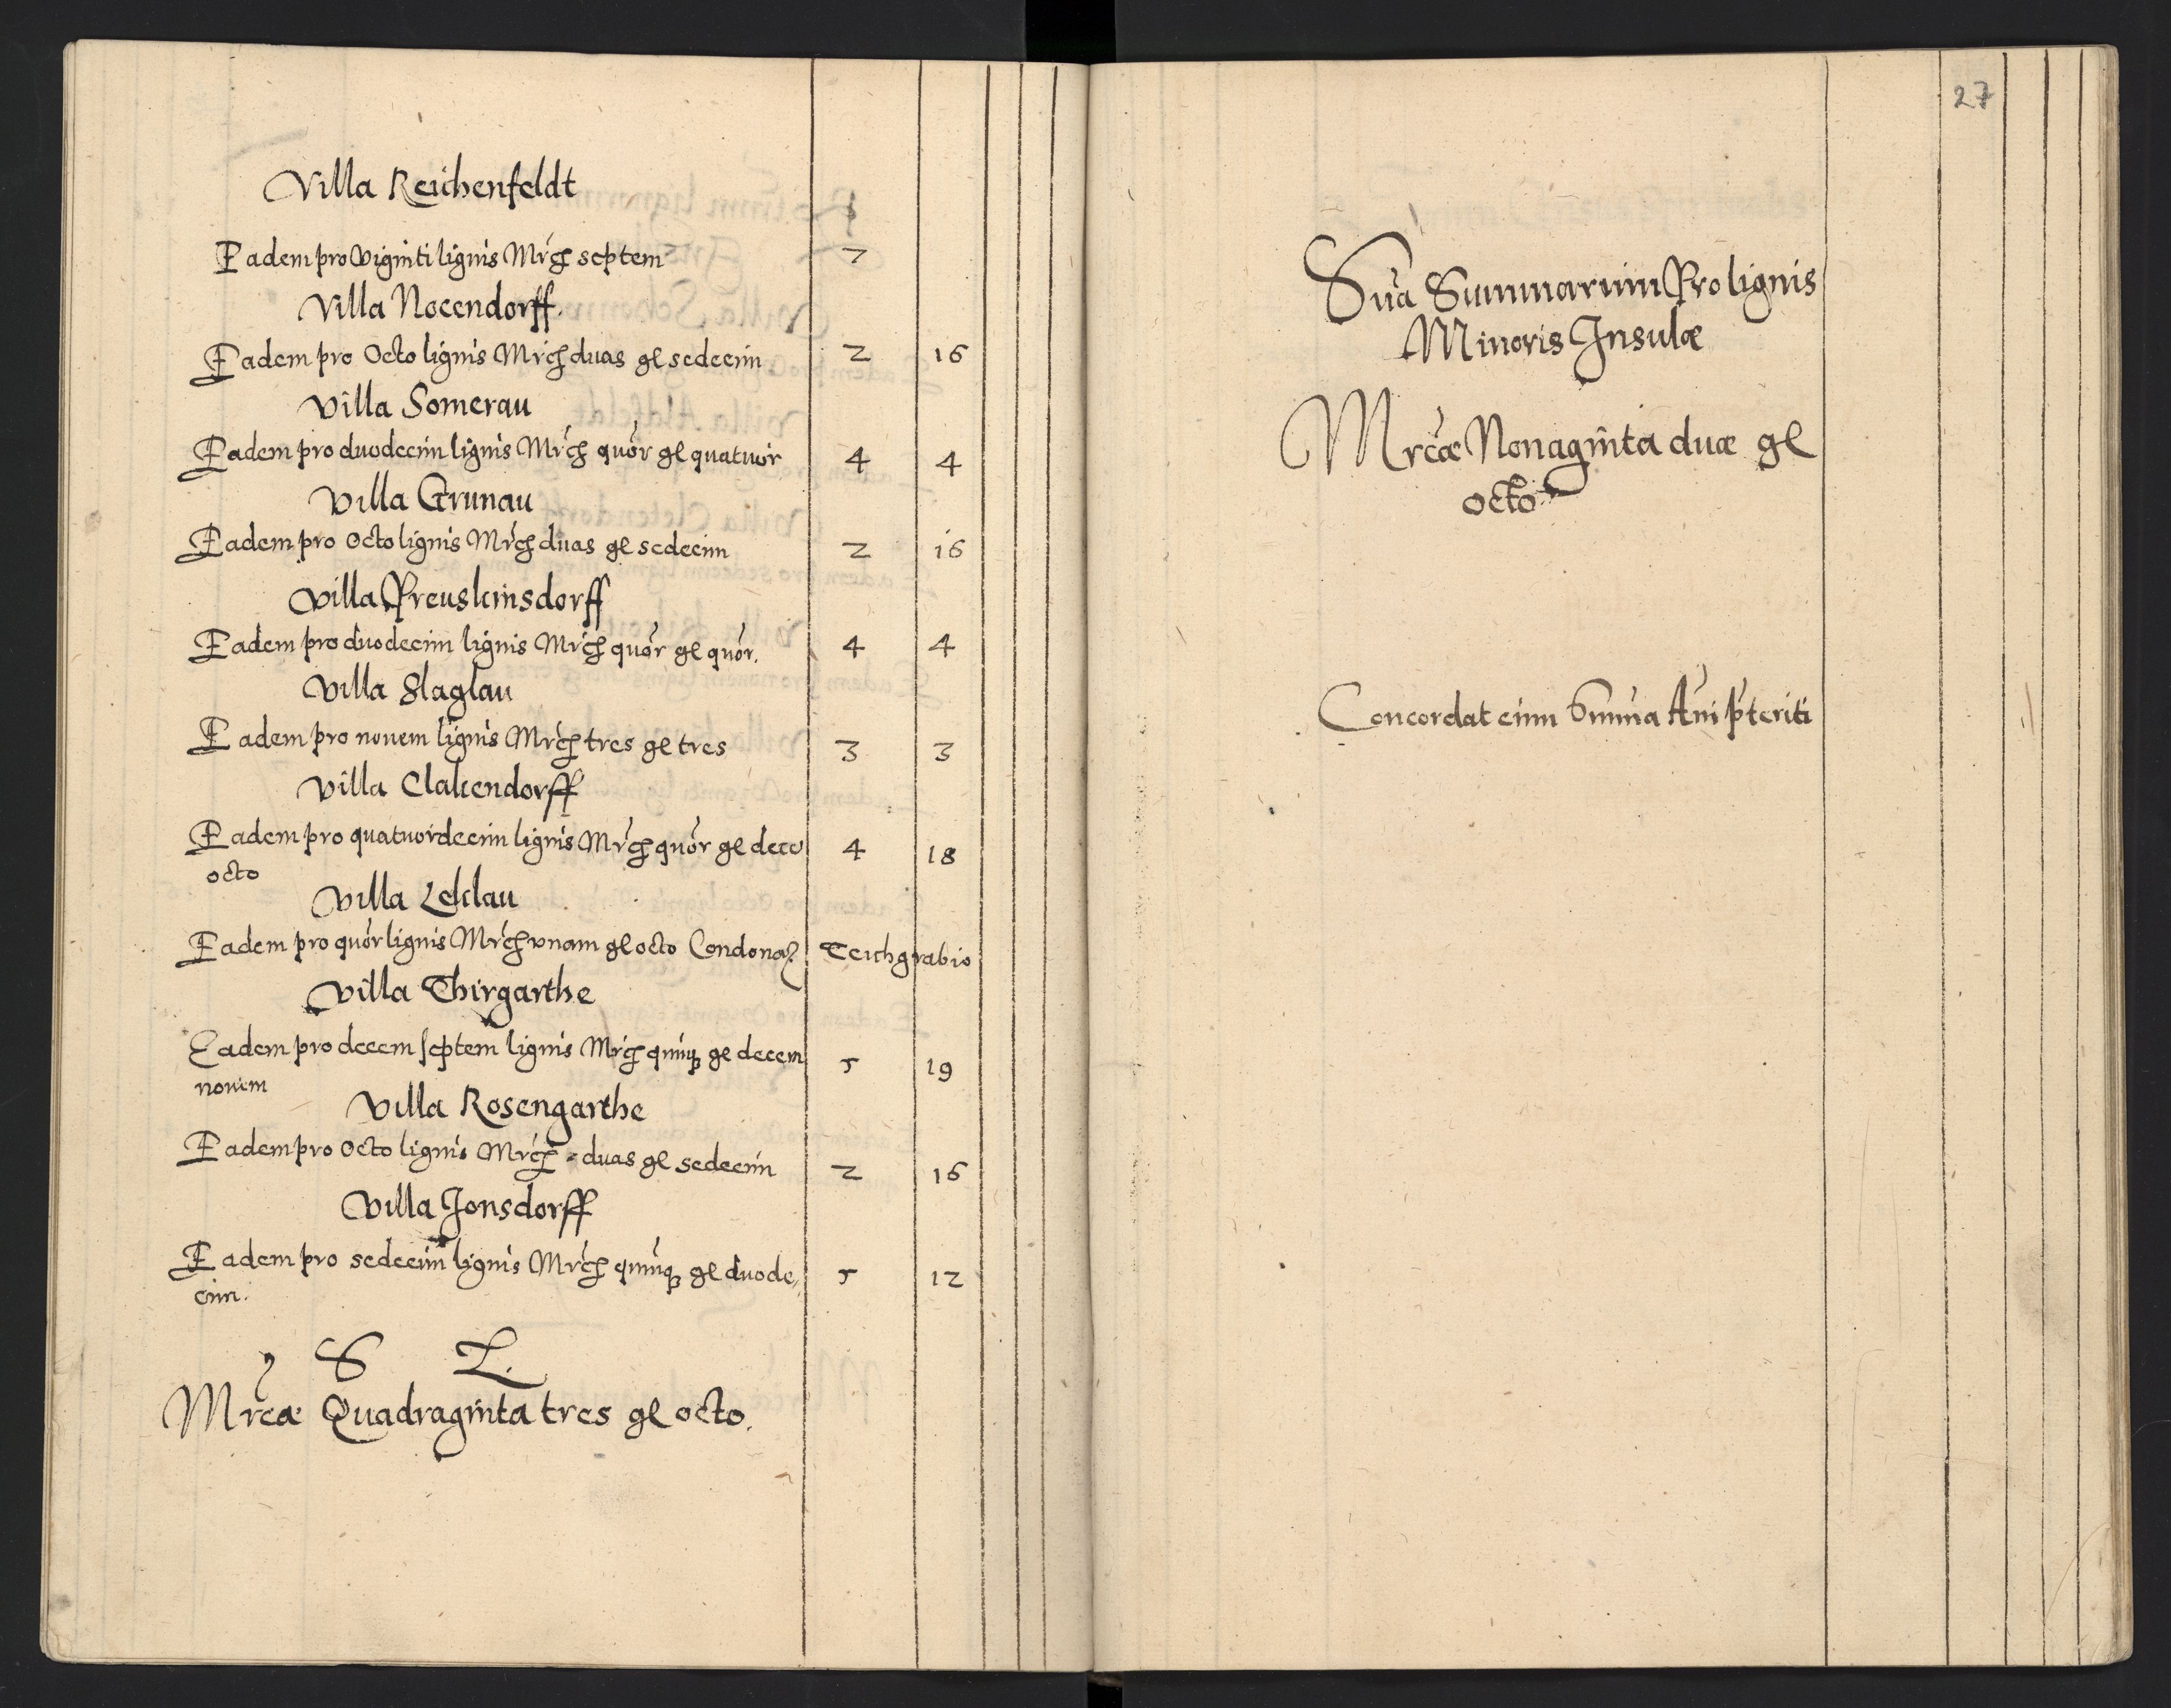 Villa Reichenfeldt
Eadem pro Viginti lignis Mrcħ septem 7
Villa Nocendorff
Eadem pro Octo lignis Mrcħ duas gl sedecim 2 16
Villa Somerau
Eadem pro duodecim lignis Mrcħ quor gl quatuor 4 4
Villa Grunau
Eadem pro Octo lignis Mrcħ duas gl sedecim 2 16
Villa Preuskinsdorff
Eadem pro duodecim lignis Mrcħ quor gl quor. 4 4
Villa Slaglau
Eadem pro nouem lignis Mrcħ tres gl tres 3 3
Villa Clakendorff
Eadem pro quatuordecim lignis Mrcħ quor gl dece 4 18
octo
Villa Leklau
Eadem pro quor lignis Mrcħ vnam gl octo Condona Teichgrabio
Villa Thirgarthe
Eadem pro decem septem lignis Mrcħ quinq gl decem 5 19
nouem
Villa Rosengarthe
Eadem pro Octo lignis Mrcħ duas gl sedecim 2 16
Villa Jonsdorff
Eadem pro sedecim lignis Mrcħ quinq gl duode, 5 12
cim.
S L.
Mrcæ Quadraginta tres gl octo.
27
Sua Summarum Pro lignis
Minoris Insulæ
Mrcæ Nonaginta duæ gl
octo
Concordat cum Summa Ani pteriti